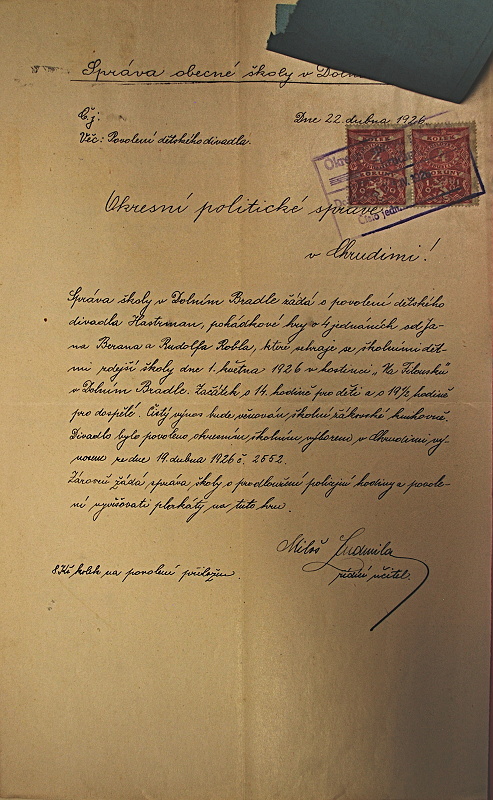 Správa obecné školy v Dolním
Č.j.
Dne 22. dubna 1926
Věc: Povolení dětského divadla.
KOLEK KOLEK
4 4
KORUNY KORUNY
Číslo jedn.
Okresní politické správě
v Chrudimi!
Správa školy v Dolním Bradle žádá o povolení dětského
divadla Hastrman, pohádkové hry o 4 jednáních od Ja-
na Berana a Rudolfa Kobla, které sehraje se školními dět-
mi zdejší školy dne 1. května 1926 v hostinci „Na
v Dolním Bradle. Začátek o 14. hodině pro děti a o 19½ hodině
pro dospělé. Čistý výnos bude věnován školní žákovské knihovně.
Divadlo bylo povoleno okresním školním výborem v Chrudimi vý-
nosem ze dne 19. dubna 1926 č. 2552.
Zároveň žádá správa školy o prodloužení policejní hodiny a povole-
ní vyvěšovati plakáty na tuto hru.
Miloš Ludmila
řídící učitel.
8 Kč kolek na povolení přiložen.